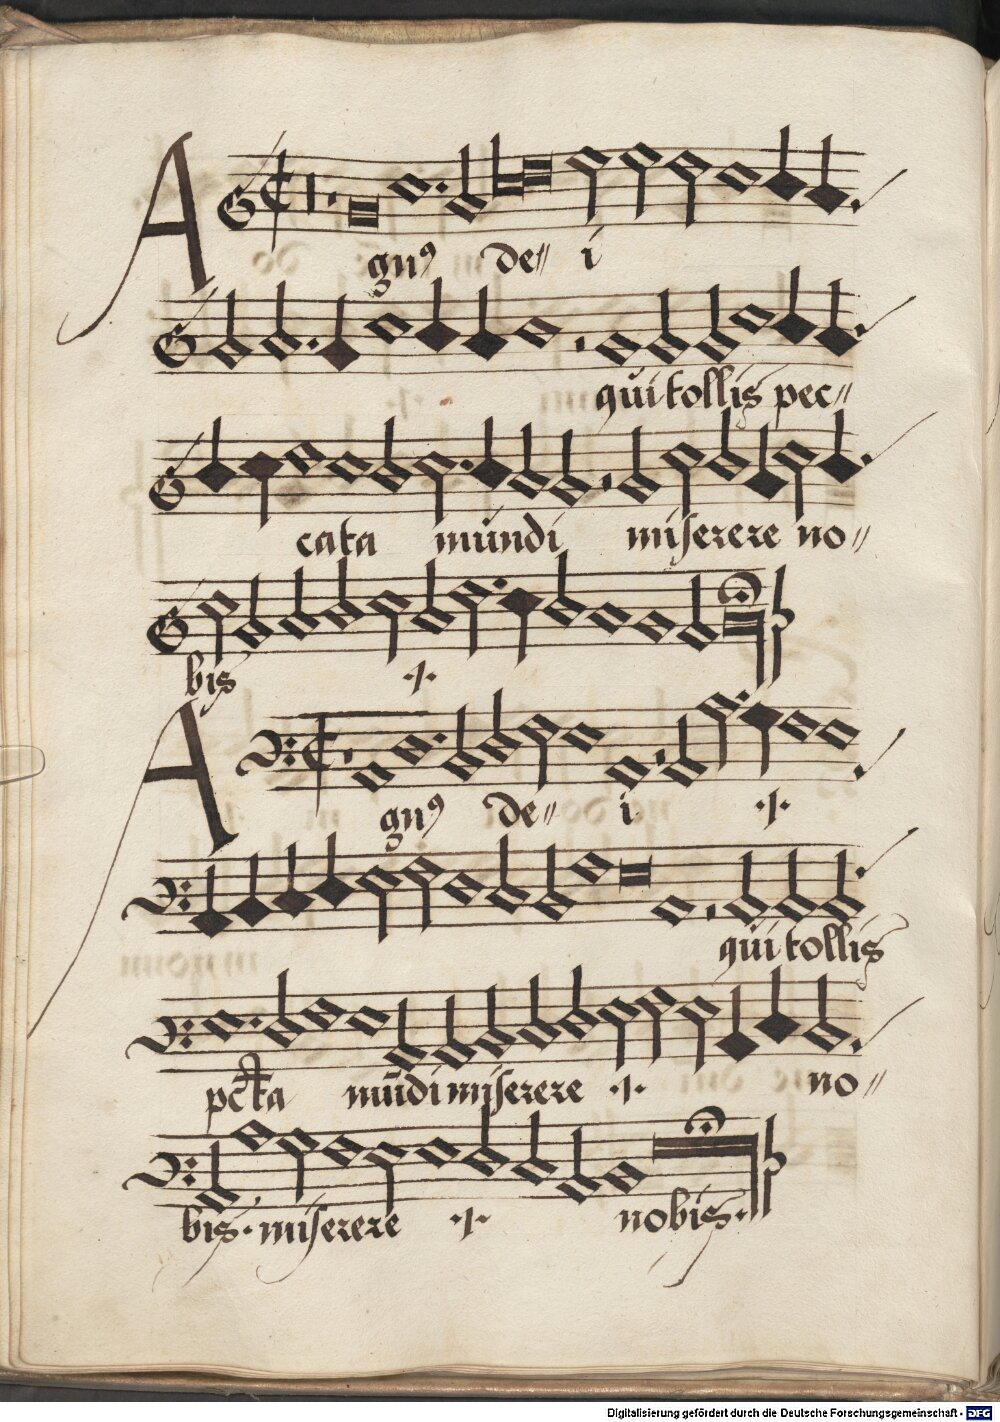 Agnꝰ de〃 i
qui tollis pec〃
cata mundi miserere no〃
bis ·/·
Agnꝰ de〃 i ·/·
qui tollis
pc̄ta mūdi miserere ·/· no〃
bis· miserere ·/· nobis·
Digitalisierung gefördert durch die Deutsche Forschungsgemeinschaft - DFG